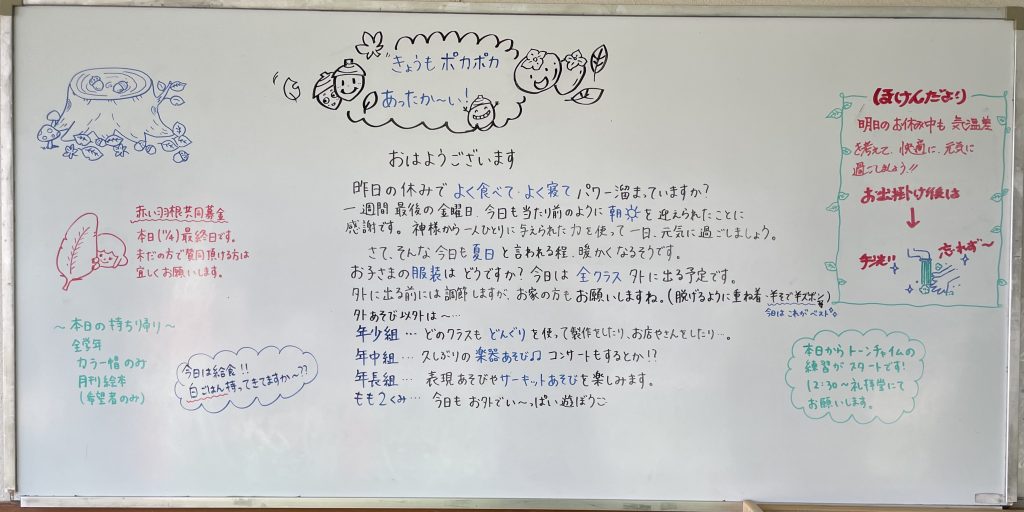 きょうも ポカポカ
あったか〜い!
おはようございます
昨日の休みで よく食べて・よく寝て パワー溜まっていますか?
一週間 最後の金曜日、今日も当たり前のように 朝 を 迎えられたことに
感謝です。神様から一人ひとりに与えられた力を使って一日、元気に過ごしましょう。
さて、そんな今日も夏日と言われる程、暖かくなるそうです。
お子さまの服装は どうですか?今日は 全クラス 外に出る予定です。
外に出る前には調節しますが、お家の方もお願いしますね。(脱げるように重ね着・半そで半ズボン等)
今日は これが ベスト。
外あそび以外は〜…
年少組… どのクラスも どんぐり を使って製作をしたり、お店やさんをしたり…。
年中組… 久しぶりの 楽器あそび♫ コンサートもするとか!?
年長組… 表現あそびやサーキットあそびを楽しみます。
もも2くみ… 今日も お外でい〜っぱい遊ぼう
赤い羽根共同募金
本日(11/4)最終日です。
まだの方で賛同頂ける方は
宜しくお願いします。
〜 本日の持ち帰り 〜
全学年
カラー帽のみ
月刊絵本
(希望者のみ)
今日は給食!!
白ごはん持ってきてますか〜??
ほけんだより
明日のお休み中も 気温差
を考えて、快適に、元気に
過ごしましょう!!
お出掛け後は
↓
手洗い
忘れず〜
本日からトーンチャイムの
練習がスタートです!
12:30〜礼拝堂にて
お願いします。